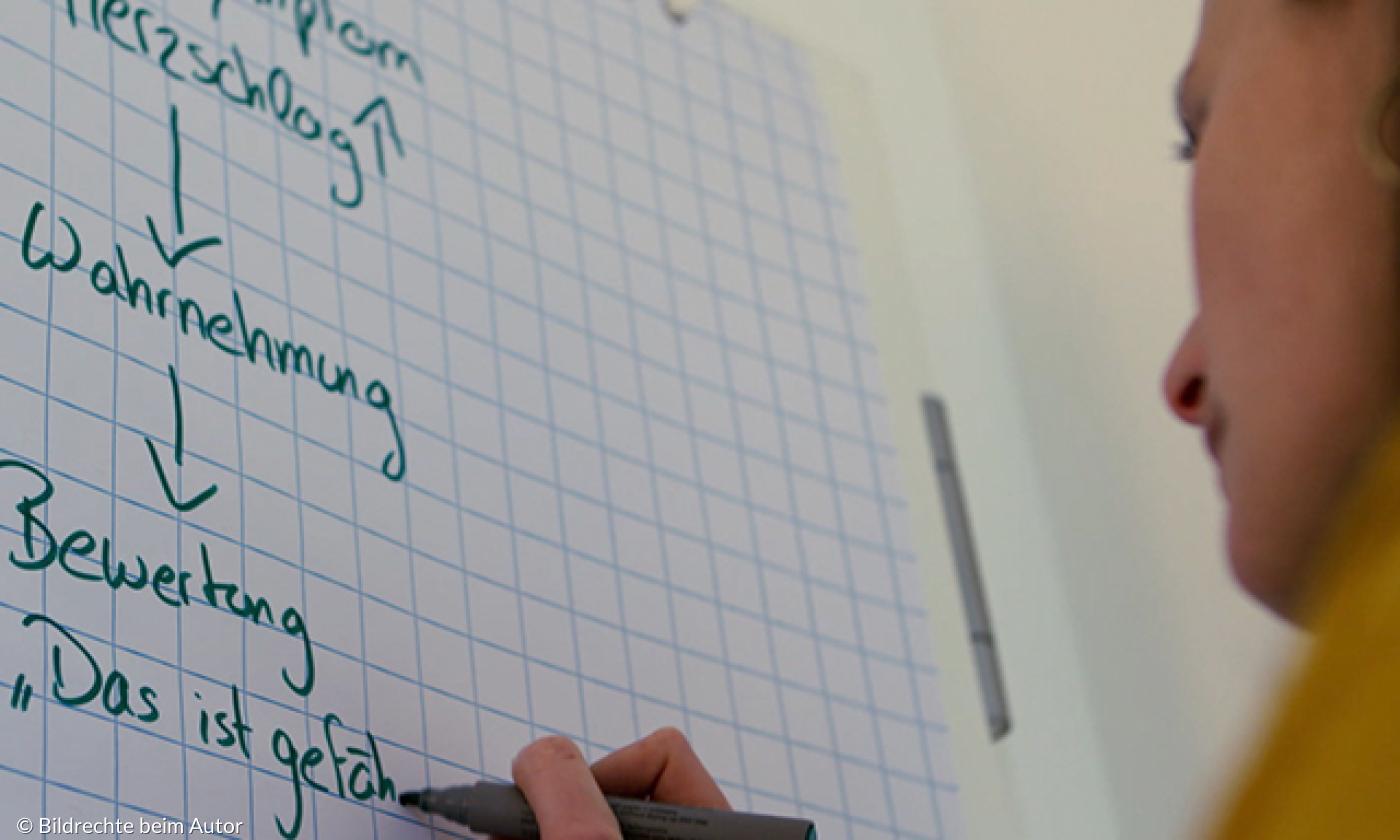 Herzschlag ↑
Wahrnehmung
Bewertung
„Das ist gefäh
© Bildrechte beim Autor